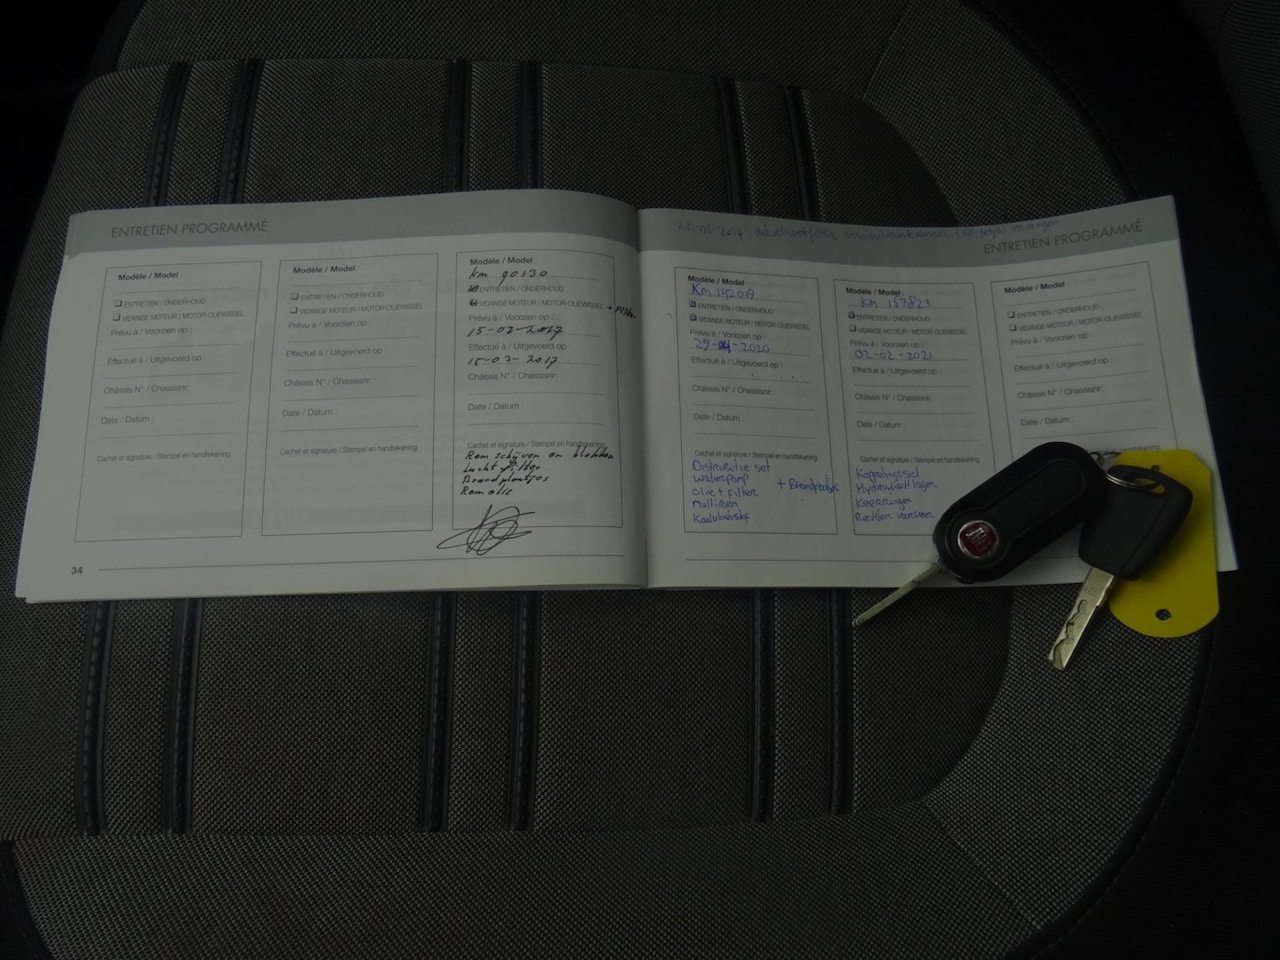 ENTRETIEN PROGRAMMÉ
Modèle / Model
ENTRETIEN / ONDERHOUD
VIDANGE MOTEUR / MOTOR-OLIEWISSEL
Prévu à / Voorzien op :
Effectué à / Uitgevoerd op :
Châssis N° / Chassisnr:
Date / Datum :
Cachet et signature / Stempel en handtekening
Modèle / Model
ENTRETIEN / ONDERHOUD
VIDANGE MOTEUR / MOTOR-OLIEWISSEL
Prévu à / Voorzien op :
Effectué à / Uitgevoerd op :
Châssis N° / Chassisnr:
Date / Datum :
Cachet et signature / Stempel en handtekening
Modèle / Model
km 90130
ENTRETIEN / ONDERHOUD
VIDANGE MOTEUR / MOTOR-OLIEWISSEL
Prévu à / Voorzien op :
15-03-2017
Effectué à / Uitgevoerd op :
15-03-2017
Châssis N° / Chassisnr:
Date / Datum :
Cachet et signature / Stempel en handtekening
Rem schijven en blokken
Lucht filter
Remolie
34
22-06-2017
ENTRETIEN PROGRAMMÉ
Modèle / Model
KM
ENTRETIEN / ONDERHOUD
VIDANGE MOTEUR / MOTOR-OLIEWISSEL
Prévu à / Voorzien op :
2020
Effectué à / Uitgevoerd op :
Châssis N° / Chassisnr:
Date / Datum :
Cachet et signature / Stempel en handtekening
Distributie set
waterpomp
olie + Filter
multiriem
Modèle / Model
KM 157823
ENTRETIEN / ONDERHOUD
VIDANGE MOTEUR / MOTOR-OLIEWISSEL
Prévu à / Voorzien op :
02-02-2021
Effectué à / Uitgevoerd op :
Châssis N° / Chassisnr:
Date / Datum :
Cachet et signature / Stempel en handtekening
Hydraulisch lager
Rechter voorveer
Modèle / Model
ENTRETIEN / ONDERHOUD
VIDANGE MOTEUR / MOTOR-OLIEWISSEL
Prévu à / Voorzien op :
Effectué à / Uitgevoerd op :
Châssis N° / Chassisnr:
Date / Datum :
Cachet et signature / Stempel en handtekening